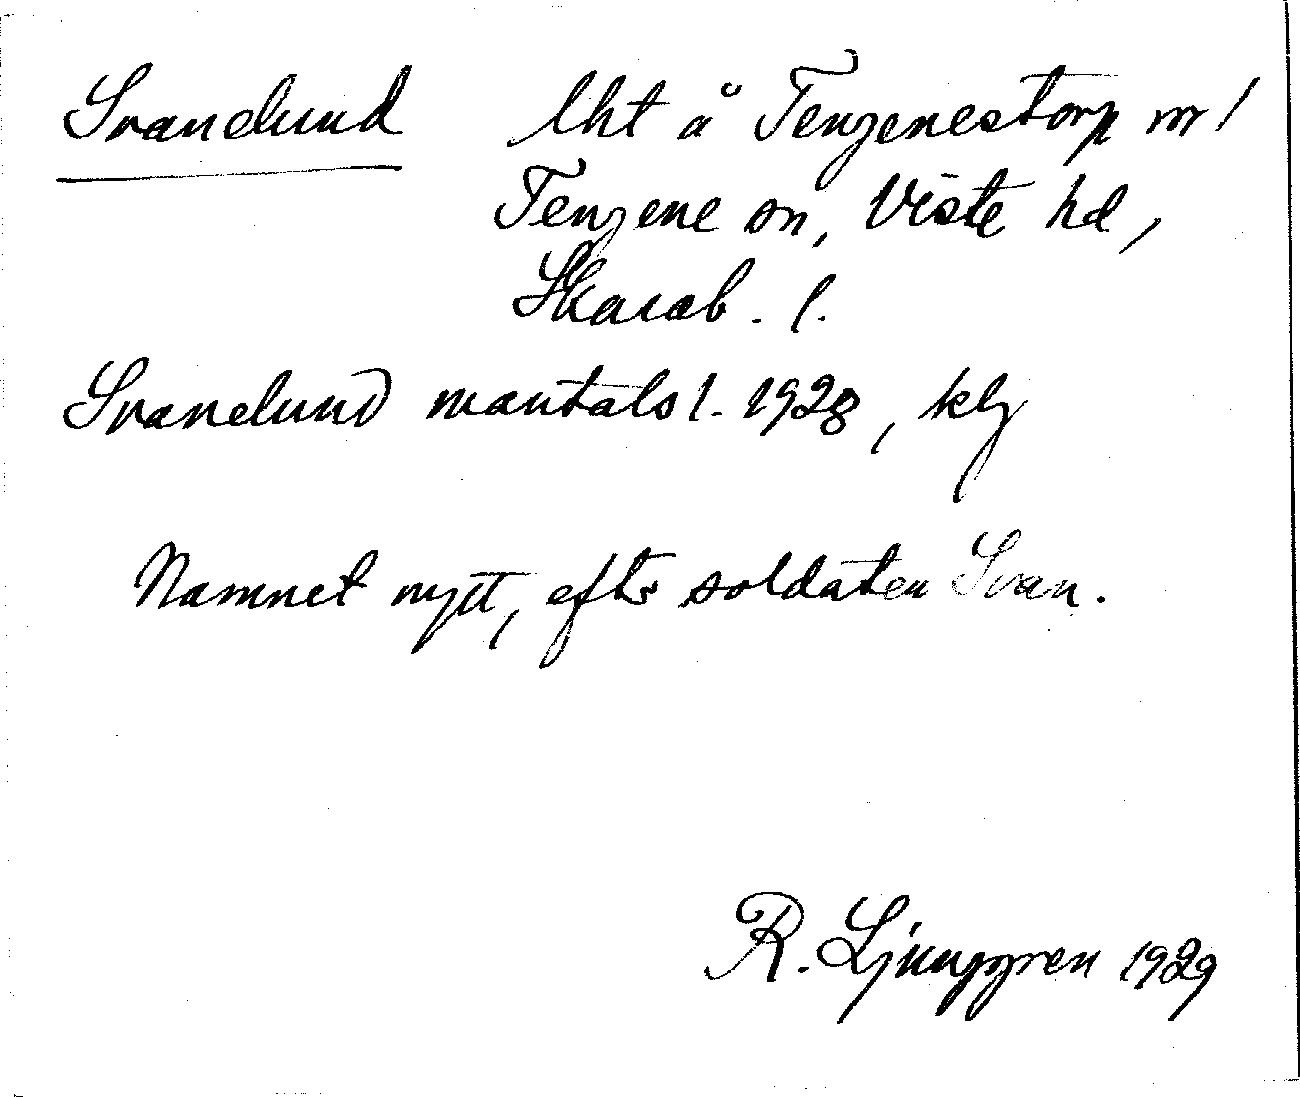 Svanelund lht å Tengenestorp nr 1
Tengene sn, Viste hd,
Skarab. l.
Svanelund mantalsl. 1928, klg
Namnet nytt, efter soldaten Svan.
R. Ljunggren 1929